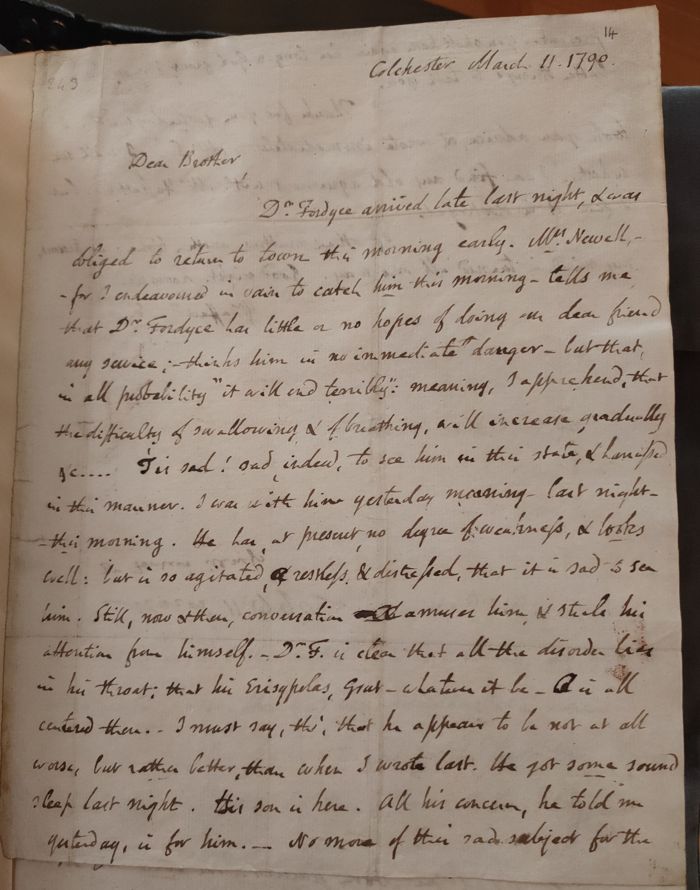 14
243
Colchester March 11. 1790.
Dear Brother
Dr. Fordyce arrived late last night, & was
obliged to return to town this morning early. Mrs. Newell, -
- for I endeavoured in vain to catch him this morning - tells me
that Dr. Fordyce has little or no hopes of doing our dear friend
any service; - thinks him in no immediate danger - but that,
in all probability "it will end terribly": meaning, I apprehend, that
the difficulty of swallowing & of breathing, will increase gradually
&c.... 'Tis sad! sad, indeed, to see him in this state, & harrassed
in this manner. I was with him yesterday morning - last night -
- this morning. He has, at present, no degree of weakness, & looks
well: but is so agitated, & restless, & distressed, that it is sad to see
him. Still, now & then, conversation amuses him, & steals his
attention from himself. - Dr. F. is clear that all the disorder lies
in his throat; that his Erisypelas, Gout - whatever it be - is all
centered there. - I must say, tho', that he appears to be not at all
worse, but rather better, than when I wrote last. He got some sound
sleep last night. His son is here. All his concern, he told me
yesterday, is for him. - No more of this sad subject for the